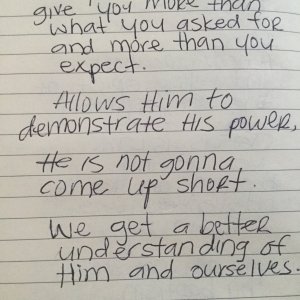 give you more than
what you asked for
and more than you
expect.
Allows Him to
demonstrate His power,
He is not gonna
come up short.
We get a better
understanding of
Him and ourselves.